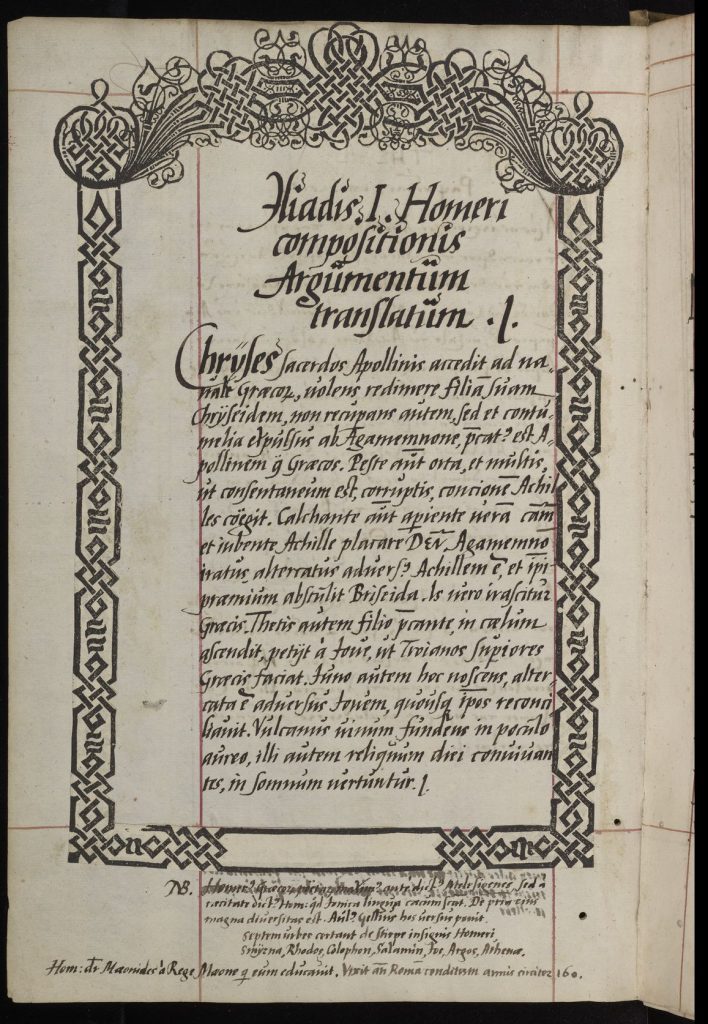 Iliadis. I. Homeri
compositionis
Argumentum
translatum. I.
Chrÿses sacerdos Apollinis accedit ad na„
uale Græcoꝝ, uolens redimere filiā suam
Chrÿseidem, non recupans autem, sed et contu„
melia expulsus ab Agamemnone, p̄catꝰ est A„
pollinem q̄ Græcos. Peste aūt orta, et multis,
ut consentaneum est, corruptis, concionē Achil
les cöegit. Calchante aūt apiente uerā cām
et iubente Achille placare Deū, Agamemnō
iratus, altercatus aduersꝰ Achillem ē, et īpi
præmium abstulit Briseida. Is uero irascitur
Græcis. Thetis autem filio p̄cante, in cælum
ascendit, petÿt à Ioue, ut Troianos supiores
Græcis faciat. Iuno autem hoc noscens, alter„
cata ē aduersus Iouem, quousq̄ īpos reconci
liauit. Vulcanus uinum fundens in poculo
aureo, illi autem reliquum diei conuiuan
tes, in somnum uertuntur. I.
NB. Homerꝰ Græcoꝝ ante dictꝰ Melesigenes, sed à
cæcitate dictꝰ Hom: qd Ionica lingua cæcum scat. De pria eius
magna diuersitas est. Aulꝰ Gellius hos uersus ponit.
Septem urbes certant de stirpe insignis Homeri,
Smÿrna, Rhodos, Colophon, Salamin, Ios, Argos, Athenæ.
Hom: dr Mæonides à Rege Mæone q eum educauit. Vixit an̄ Romā conditam annis circiter 160.